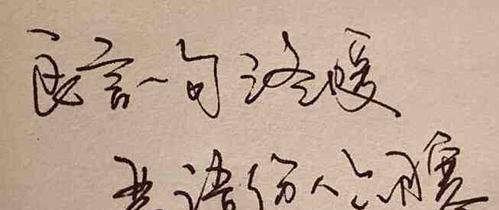 良言一句终暖
恶语伤人六月寒